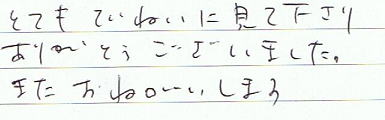 とても ていねいに 見て 下さり
ありがとうございました。
また おねがいします